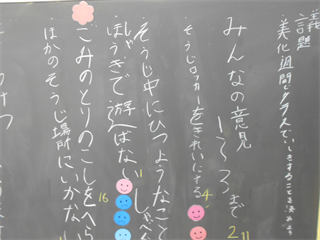 議題
美化週間でクラスでいしきすることを決めよう
みんなの意見 1〜3まで
そうじロッカーをきれいにする 4 2
そうじ中にひつようなこと しゃべら 11
ほうきで遊べばない
16
ごみのとりのこしをへらし
ほかのそうじ場所にいかない